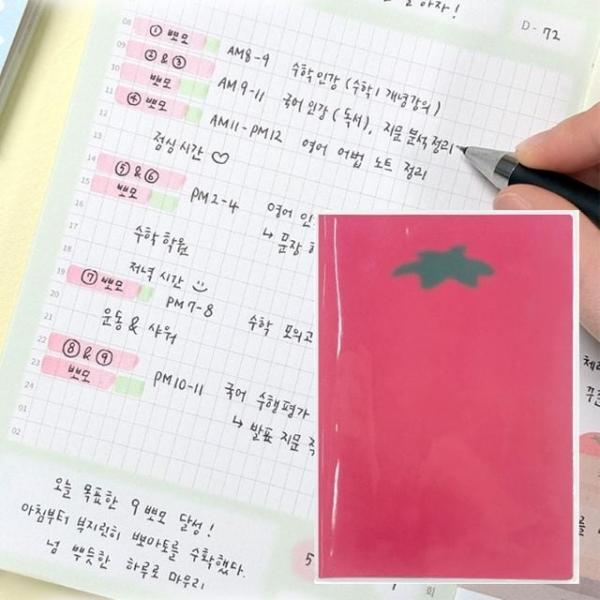 알차!
D-72
08
① 뽀모 AM8-9 수학 인강 (수학1 개념강의)
09
② & ③
10
뽀모 AM9-11 국어 인강 (독서), 지문 분석 정리
11
④ 뽀모 AM11-PM12 영어 어법 노트 정리
12
점심시간 ♡
14
⑤ & ⑥
15
뽀모 PM2-4 영어
↳ 문장
16
17
수학 학원
18
저녁 시간
19
⑦ 뽀모 PM7-8 수학 모의고
20
21
운동 & 샤워
22
⑧ & ⑨
23
뽀모 PM10-11 국어 수행평가
↳ 발표 지문
24
01
02
오늘 목표한 9뽀모 달성!
아침부터 부지런히 뽀마토를 수확했다.
넘 뿌듯한 하루로 마무리
5
회